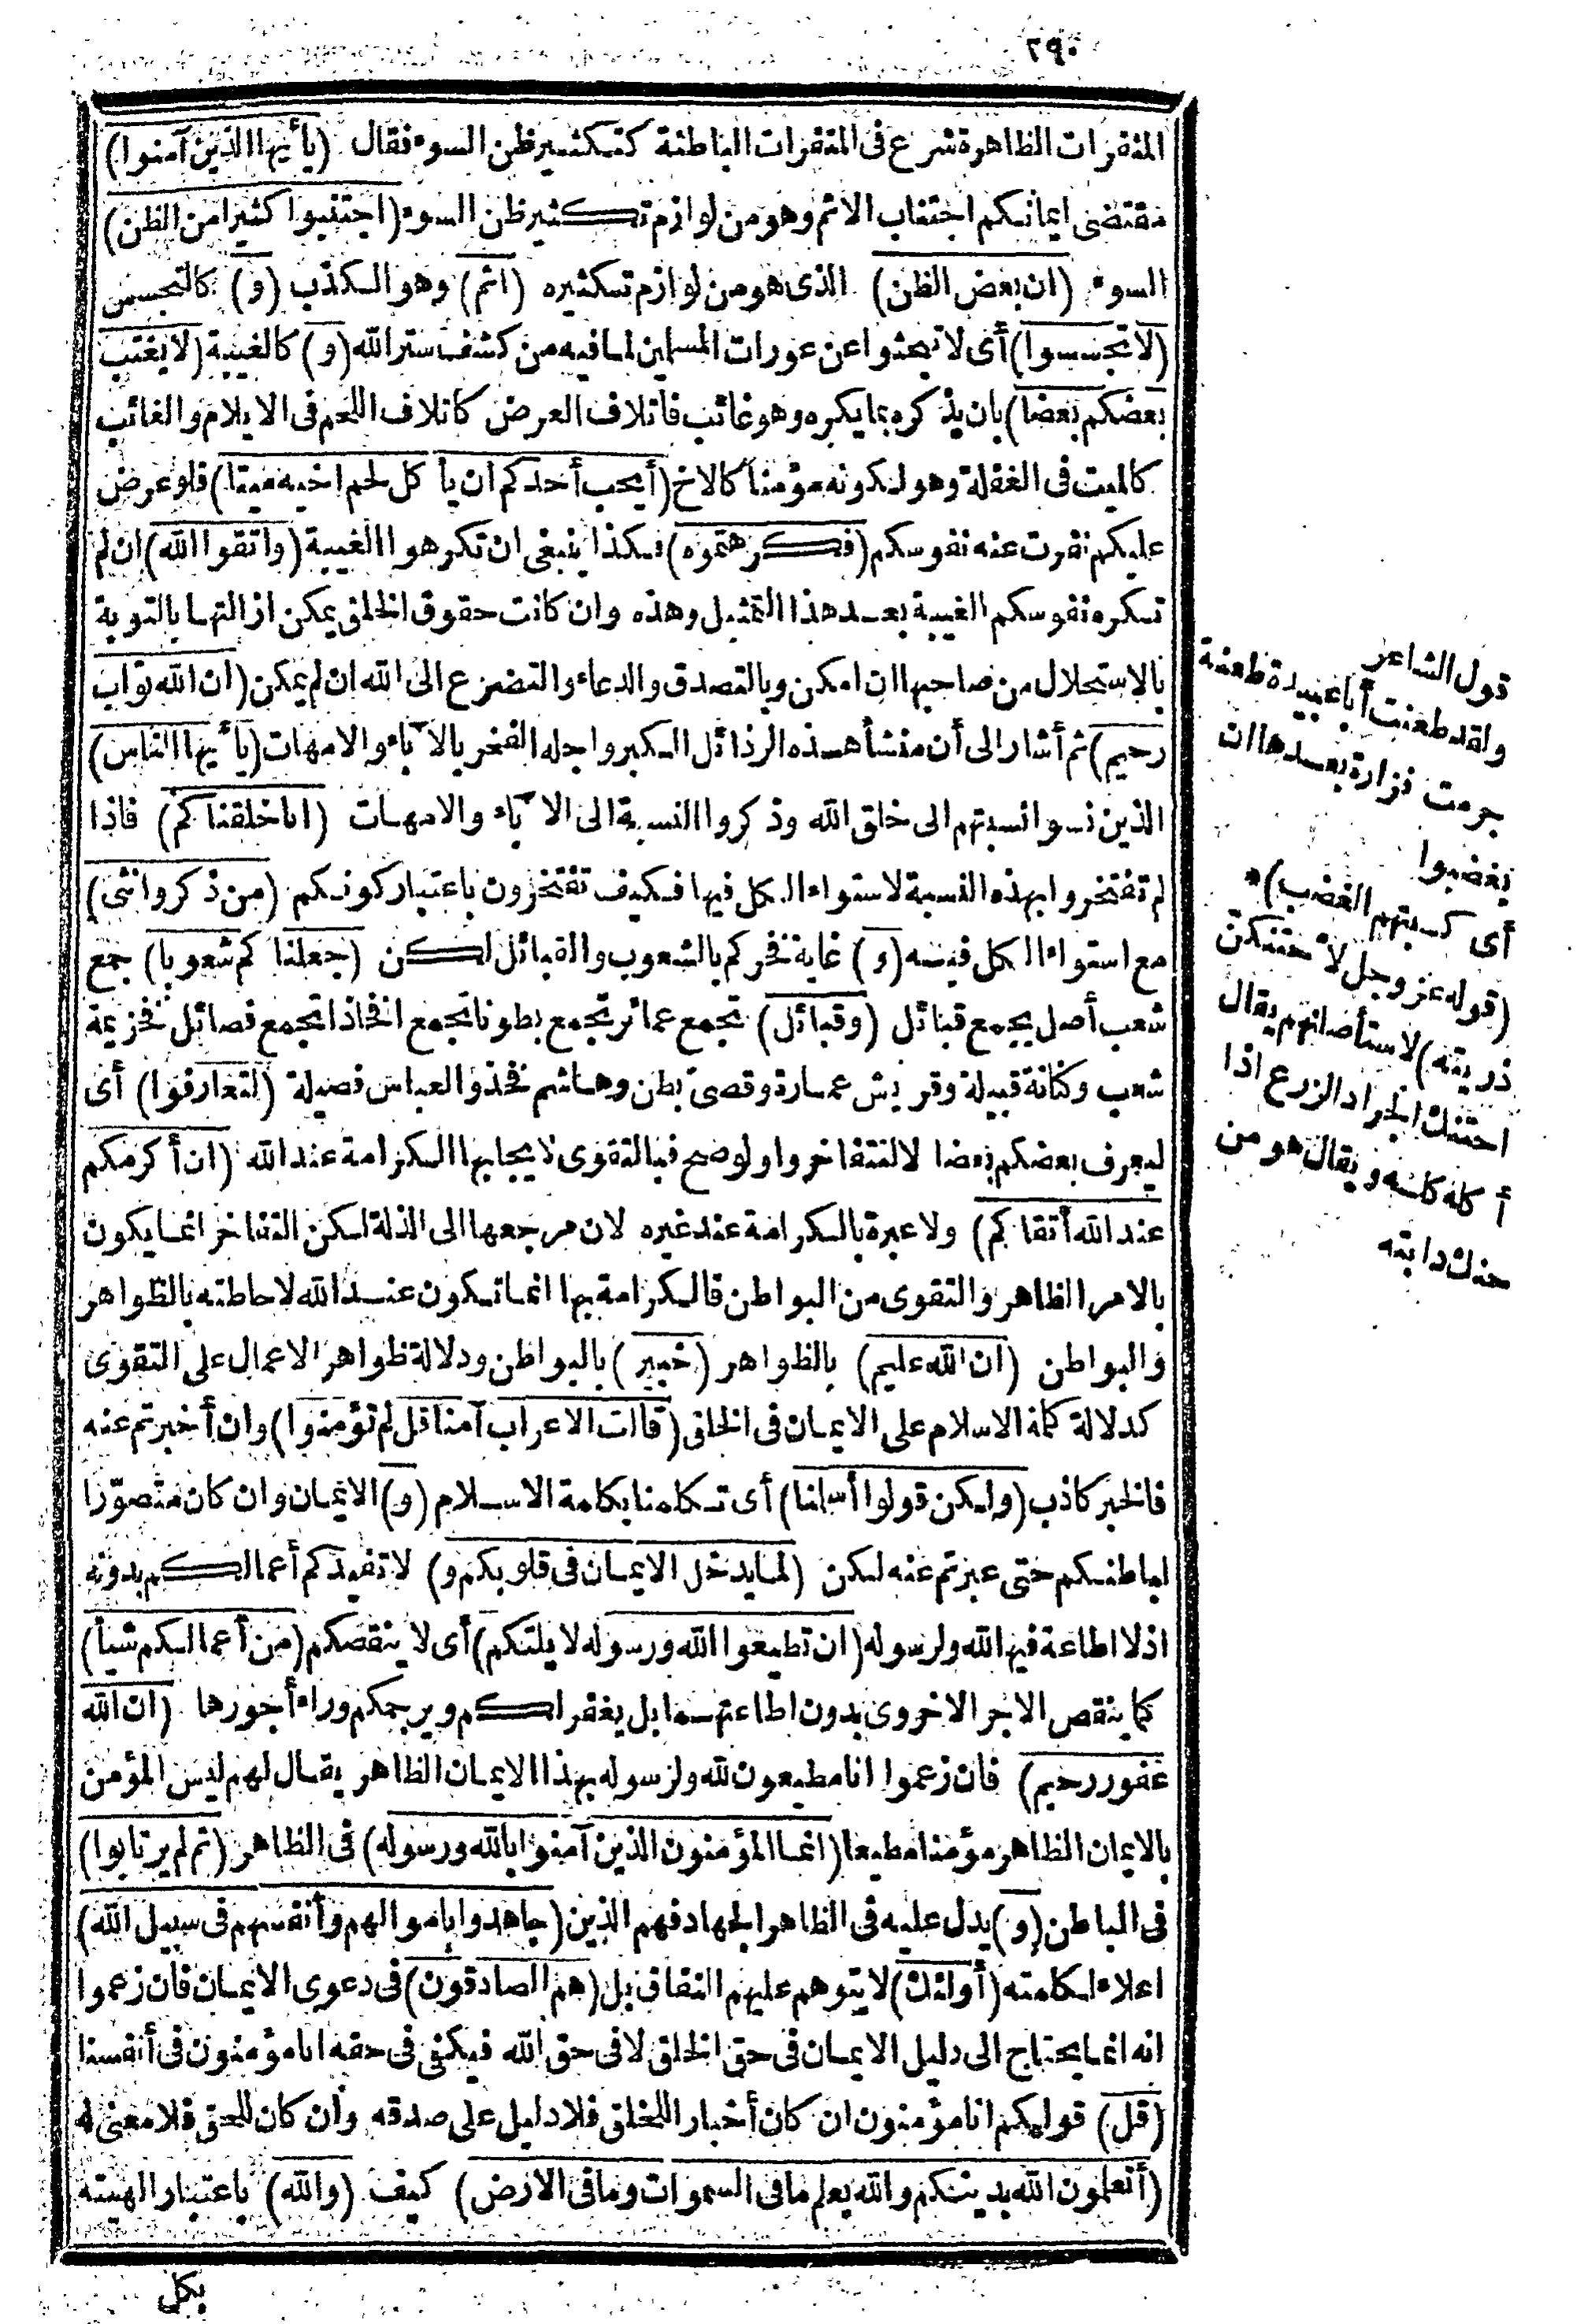 ٢٩٠
المنفرات الظاهرة شرع فى المنفرات الباطنة كتكثير ظن السوء فقال (يا أيها الذين آمنوا)
مقتضى ايمانكم اجتناب الاثم وهو من لوازم تكثير ظن السوء (اجتنبوا كثيرا من الظن)
السوء (ان بعض الظن) الذى هو من لوازم تكثيره (اثم) وهو الكذب (و) كالتجسس
(لا تجسسوا) أى لا تبحثوا عن عورات المسلمين لما فيه من كشف ستر الله (و) كالغيبة (لا يغتب
بعضكم بعضا) بان يذكره بما يكره وهو غائب فاتلاف العرض كاتلاف اللحم فى الايلام والغائب
كالميت فى الغفلة وهو لكونه مؤمنا كالاخ (أيحب أحدكم ان يأكل لحم اخيه ميتا) فلو عرض
عليكم نفرت عنه نفوسكم (فكرهتموه) فكذا ينبغى ان تكرهوا الغيبة (واتقوا الله) ان لم
تكره نفوسكم الغيبة بعد هذا التمثيل وهذه وان كانت حقوق الخلق يمكن ازالتها بالتوبة
بالاستحلال من صاحبها ان امكن وبالتصدق والدعاء والتضرع الى الله ان لم يمكن (ان الله تواب
رحيم) ثم أشار الى أن منشأ هذه الرذائل الكبر واجله الفخر بالآباء والامهات (يا أيها الناس)
الذين نسوا نسبتهم الى خلق الله وذكروا النسبة الى الآباء والامهات (انا خلقناكم) فاذا
لم تفتخروا بهذه النسبة لاستواء الكل فيها فكيف تفتخرون باعتبار كونكم (من ذكر وانثى)
مع استواء الكل فيه (و) غاية فخركم بالشعوب والقبائل لكن (جعلناكم شعوبا) جمع
شعب أصل يجمع قبائل (وقبائل) تجمع عمائر تجمع بطونا تجمع افخاذا تجمع فصائل فخزيمة
شعب وكنانة قبيلة وقريش عمارة وقصى بطن وهاشم فخذ والعباس فصيلة (لتعارفوا) أى
ليعرف بعضكم بعضا لا لتتفاخروا ولو صح فبالتقوى لايجابها الكرامة عند الله (ان أكرمكم
عند الله أتقاكم) ولا عبرة بالكرامة عند غيره لان مرجعها الى الذلة لكن التفاخر انما يكون
بالامر الظاهر والتقوى من البواطن فالكرامة بها انما تكون عند الله لاحاطته بالظواهر
والبواطن (ان الله عليم) بالظواهر (خبير) بالبواطن ودلالة ظواهر الاعمال على التقوى
كدلالة كلمة الاسلام على الايمان فى الخلق (قالت الاعراب آمنا قل لم تؤمنوا) وان أخبرتم عنه
فالخبر كاذب (ولكن قولوا أسلمنا) أى تكلمنا بكلمة الاسلام (و) الايمان وان كان متصوّرا
لباطنكم حتى عبرتم عنه لكن (لما يدخل الايمان فى قلوبكم و) لا تفيدكم أعمالكم بدونه
اذ لا اطاعة فيها لله ولرسوله (ان تطيعوا الله ورسوله لا يلتكم) أى لا ينقصكم (من أعمالكم شيأ)
كما ينقص الاجر الاخروى بدون اطاعتهما بل يغفر لكم ويرحمكم وراء أجورها (ان الله
غفور رحيم) فان زعموا انا مطيعون لله ولرسوله بهذا الايمان الظاهر يقال لهم ليس المؤمن
بالايمان الظاهر مؤمنا مطيعا (انما المؤمنون الذين آمنوا بالله ورسوله) فى الظاهر (ثم لم يرتابوا)
فى الباطن (و) يدل عليه فى الظاهر الجهاد فهم الذين (جاهدوا باموالهم وأنفسهم فى سبيل الله)
اعلاء لكلمته (أولئك) لا يتوهم عليهم النفاق بل (هم الصادقون) فى دعوى الايمان فان زعموا
انه انما يحتاج الى دليل الايمان فى حق الخلق لا فى حق الله فيكفى فى حقه انا مؤمنون فى أنفسنا
(قل) قولكم انا مؤمنون ان كان أخبارا للخلق فلا دليل على صدقه وان كان للحق فلا معنى له
(أتعلمون الله بدينكم والله يعلم ما فى السموات وما فى الارض) كيف (والله) باعتبار الهيته
بكل
قول الشاعر
ولقد طعنت أبا عبيدة طعنة
جرمت فزارة بعدها ان
يغضبوا
أى كسبتهم الغضب)*
(قوله عز وجل لأحتنكن
ذريته) لاستأصلنهم يقال
احتنك الجراد الزرع اذا
أكله كله ويقال هو من
حنك دابته